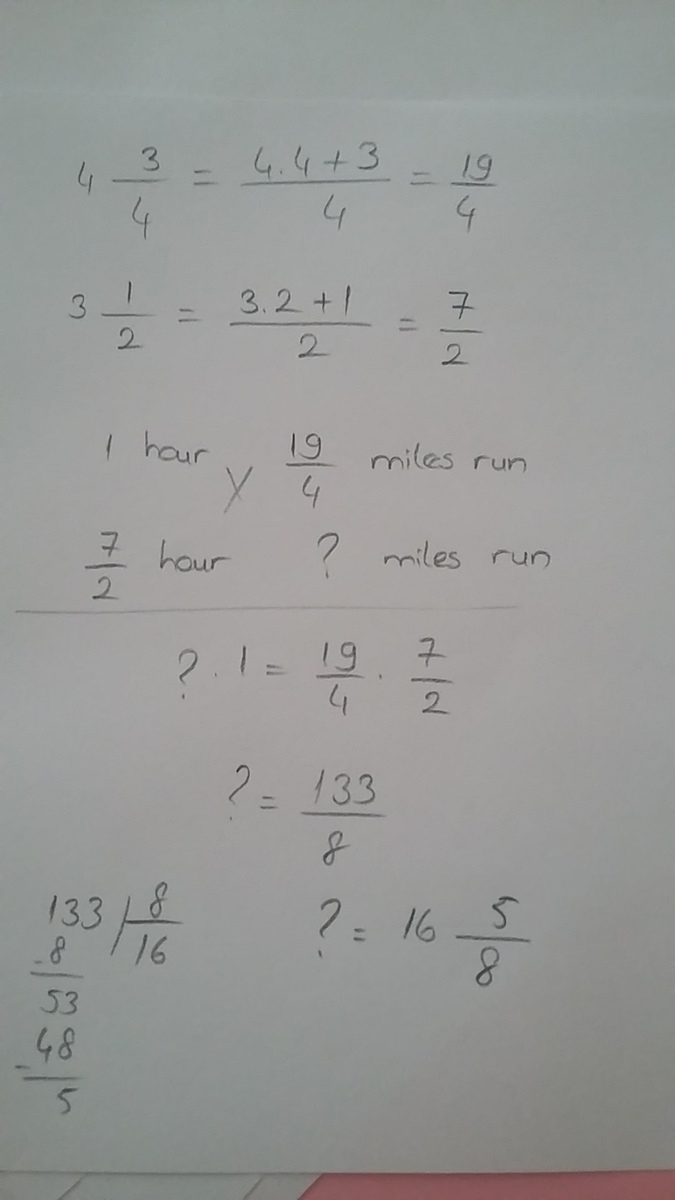 4 3/4 = 4.4+3/4 = 19/4
3 1/2 = 3.2+1/2 = 7/2
1 hour 19/4 miles run
7/2 hour ? miles run
? . 1 = 19/4 . 7/2
? = 133/8
133 8
-8 16
53
-48
5
? = 16 5/8